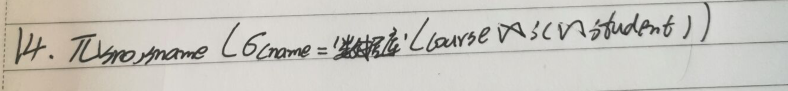 14. π sno,sname (σ cname='数据库'(course⋈sc⋈student))